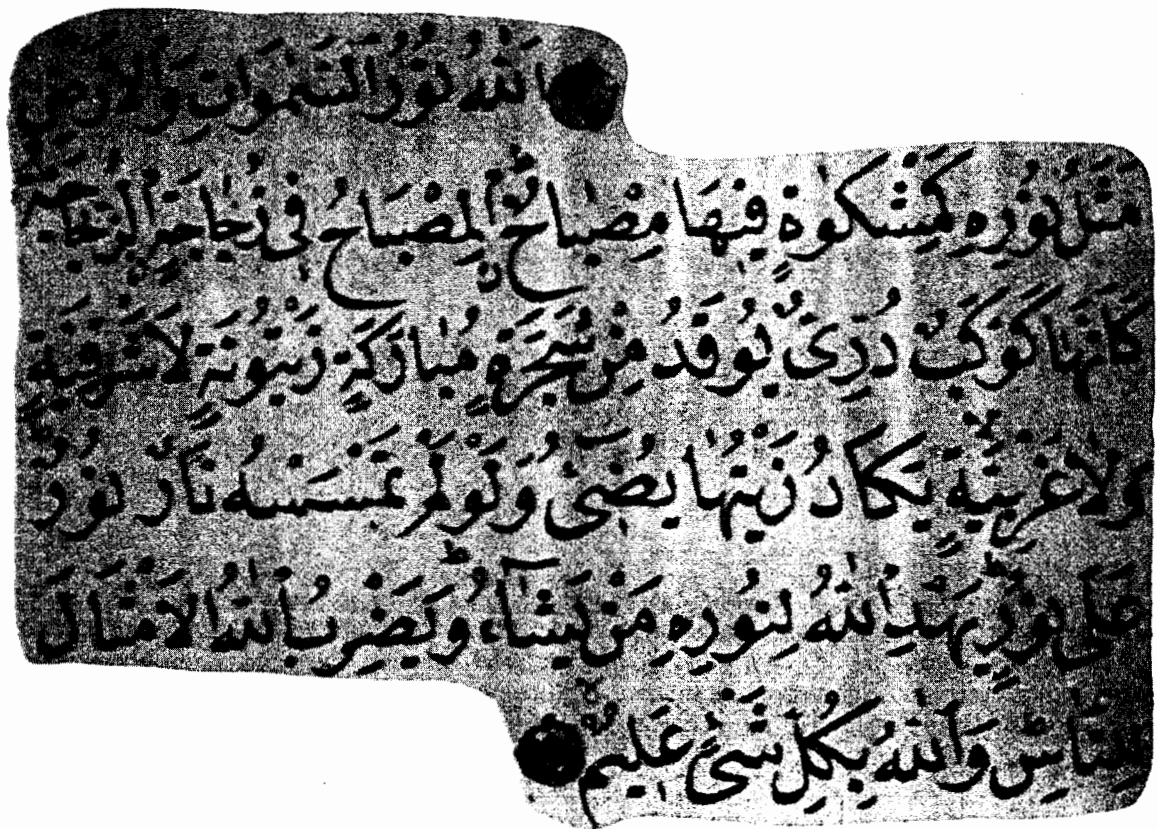 اَللّٰهُ نُورُ السَّمٰوَاتِ وَالْاَرْضِ
مَثَلُ نُورِهِ كَمِشْكٰوةٍ فِيْهَا مِصْبَاحٌ اَلْمِصْبَاحُ فِى زُجَاجَةٍ اَلزُّجَاجَةُ
كَاَنَّهَا كَوْكَبٌ دُرِّىٌّ يُوقَدُ مِنْ شَجَرَةٍ مُبَارَكَةٍ زَيْتُونَةٍ لَا شَرْقِيَّةٍ
وَلَا غَرْبِيَّةٍ يَكَادُ زَيْتُهَا يُضِىۤءُ وَلَوْ لَمْ تَمْسَسْهُ نَارٌ نُورٌ
عَلٰى نُورٍ يَهْدِى اللّٰهُ لِنُورِهِ مَنْ يَشَاۤءُ وَيَضْرِبُ اللّٰهُ الْاَمْثَالَ
لِلنَّاسِ وَاللّٰهُ بِكُلِّ شَىْءٍ عَلِيمٌ